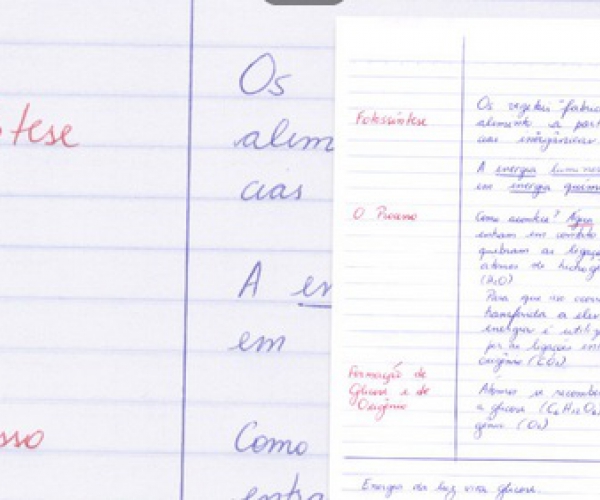 tese
Os
alim
cias
A en
em
sso
Como
entra
Fotossíntese
Os vegetais "fabrica
alimento a part
cias inorgânicas.
A energia lumino
em energia quími
O Processo
Como acontece? Água
entram em contato
quebram as ligaçõ
átomos de hidrogê
(H2O)
Para que isso ocorr
transferida a elet
energia é utiliz
por as ligações en
oxigênio (CO2)
Formação de
Glicose e de
Oxigênio
Átomos se recombin
a glicose (C6H12O6)
gênio (O2)
Energia da luz vira glicose